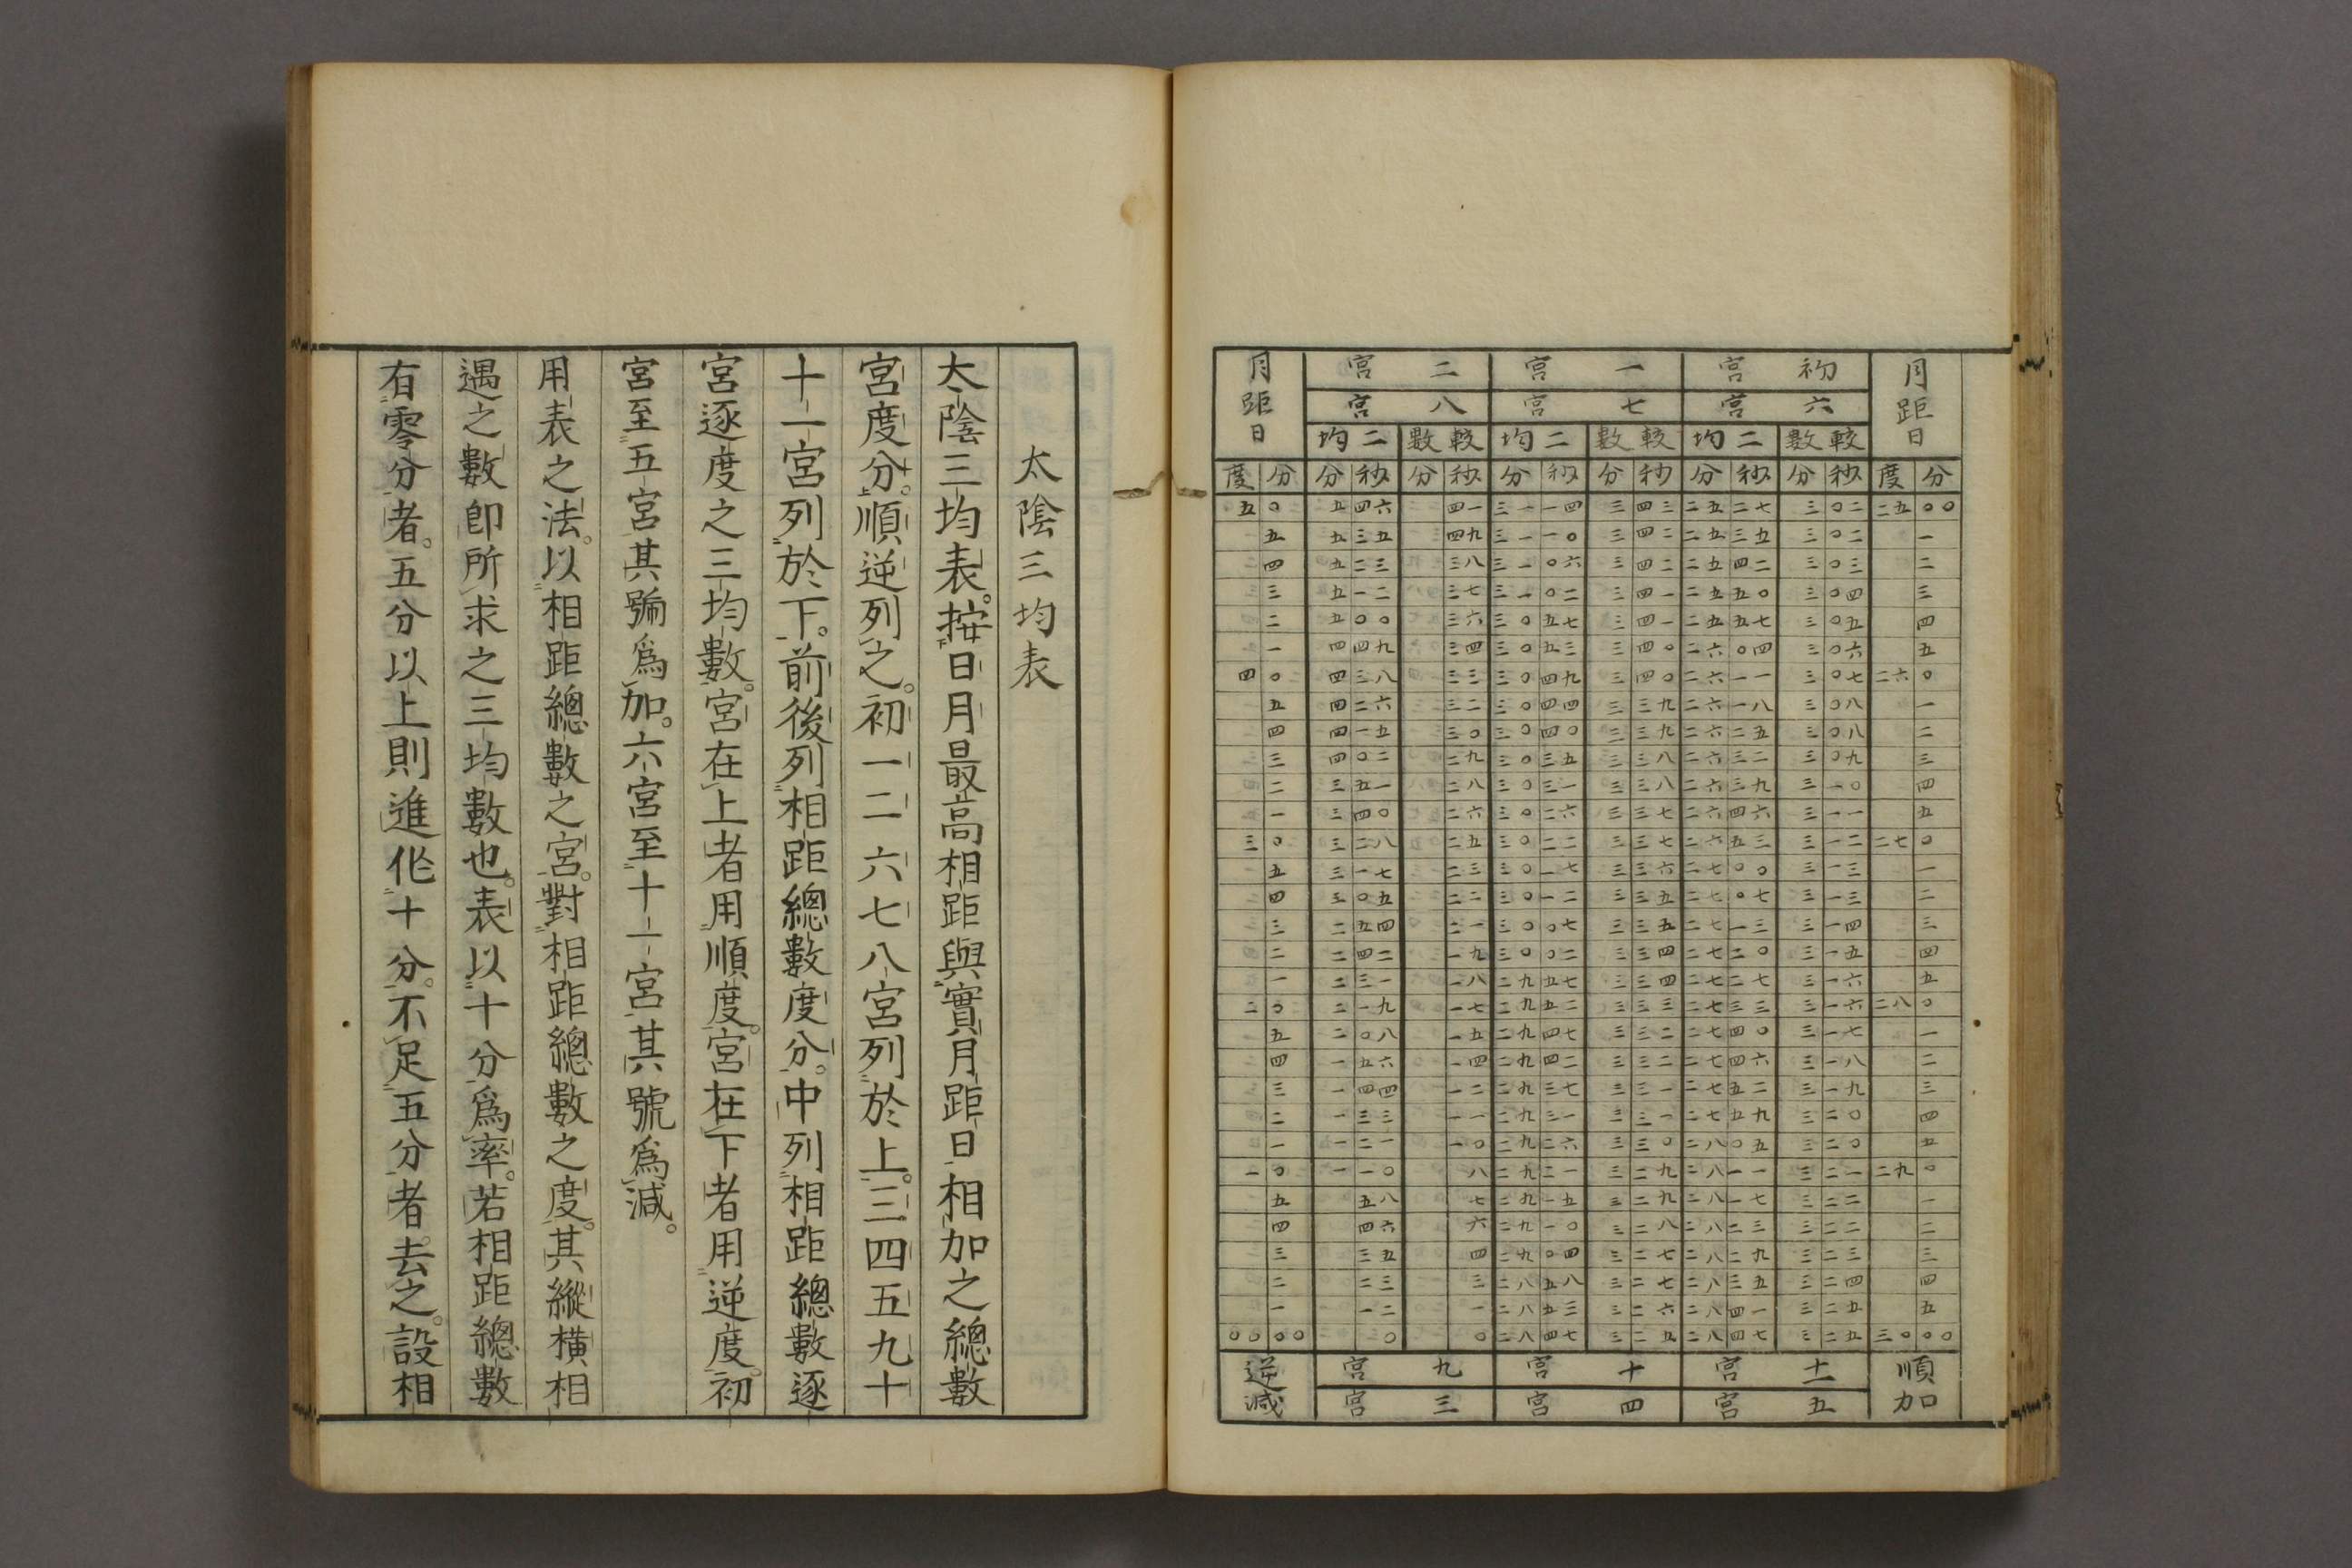 月距日 初宮 一宮 二宮 月距日
六宮 七宮 八宮
較數 二均 較數 二均 較數 二均
度 分 分 秒 分 秒 分 秒 分 秒 分 秒 分 秒 度 分
五 〇 五 四六 四一 三一 一四 三 四三 二五 二七 三 〇二 二五 〇〇
五 五 三五 四九 三一 一〇 三 四二 二五 三五 三 〇二 一
四 五 二三 三八 三一 〇六 三 四二 二五 四二 三 〇三 二
三 五 一二 三七 三一 〇二 三 四一 二五 五〇 三 〇四 三
二 五 〇〇 三六 三〇 五七 三 四一 二五 五七 三 〇五 四
一 四 四九 三四 三〇 五三 三 四〇 二六 〇四 三 〇六 五
四 〇 四 三八 三三 三〇 四九 三 四〇 二六 一一 三 〇七 二六 〇
五 四 二六 三二 三〇 四四 三 三九 二六 一八 三 〇八 一
四 四 一五 三〇 三〇 四〇 三 三九 二六 二五 三 〇八 二
三 四 〇二 二九 三〇 三五 三 三八 二六 三二 三 〇九 三
二 三 五一 二八 三〇 三一 三 三八 二六 三九 三 一〇 四
一 三 四〇 二六 三〇 二六 三 三七 二六 四六 三 一一 五
三 〇 三 二八 二五 三〇 二二 三 三七 二六 五三 三 一二 二七 〇
五 三 一七 二三 三〇 一七 三 三六 二七 〇〇 三 一三 一
四 三 〇五 二二 三〇 一二 三 三五 二七 〇七 三 一三 二
三 二 五四 二一 三〇 〇七 三 三五 二七 一三 三 一四 三
二 二 四二 一九 三〇 〇二 三 三四 二七 二〇 三 一五 四
一 二 三一 一八 二九 五七 三 三四 二七 二七 三 一六 五
二 〇 二 一九 一七 二九 五二 三 三三 二七 三三 三 一六 二八 〇
五 二 〇八 一五 二九 四七 三 三二 二七 四〇 三 一七 一
四 一 五六 一四 二九 四二 三 三二 二七 四六 三 一八 二
三 一 四四 一二 二九 三七 三 三一 二七 五二 三 一九 三
二 一 三三 一一 二九 三一 三 三一 二七 五九 三 二〇 四
一 一 二一 一〇 二九 二六 三 三〇 二八 〇五 三 二〇 五
一 〇 一 一〇 八 二九 二一 三 二九 二八 一一 三 二一 二九 〇
五 五八 七 二九 一五 三 二九 二八 一七 三 二二 一
四 四六 六 二九 一〇 三 二八 二八 二三 三 二二 二
三 三五 四 二九 〇四 三 二七 二八 二九 三 二三 三
二 二三 三 二八 五八 三 二七 二八 三五 三 二四 四
一 一二 一 二八 五三 三 二六 二八 四一 三 二五 五
〇〇 〇〇 〇 〇 二八 四七 三 二五 二八 四七 三 二五 三〇 〇〇
順加 十一宮 十宮 九宮 逆減
五宮 四宮 三宮
太陰三均表
太陰三均表。按日月最高相距與實月距日相加之總數
宮度分。順逆列之。初一二六七八宮列於上。三四五九十
十一宮列於下。前後列相距總數度分。中列相距總數逐
宮逐度之三均數。宮在上者用順度。宮在下者用逆度。初
宮至五宮其號爲加。六宮至十一宮其號爲減。
用表之法。以相距總數之宮。對相距總數之度。其縱橫相
遇之數卽所求之三均數也。表以十分爲率。若相距總數
有零分者。五分以上則進作十分。不足五分者。去之。設相